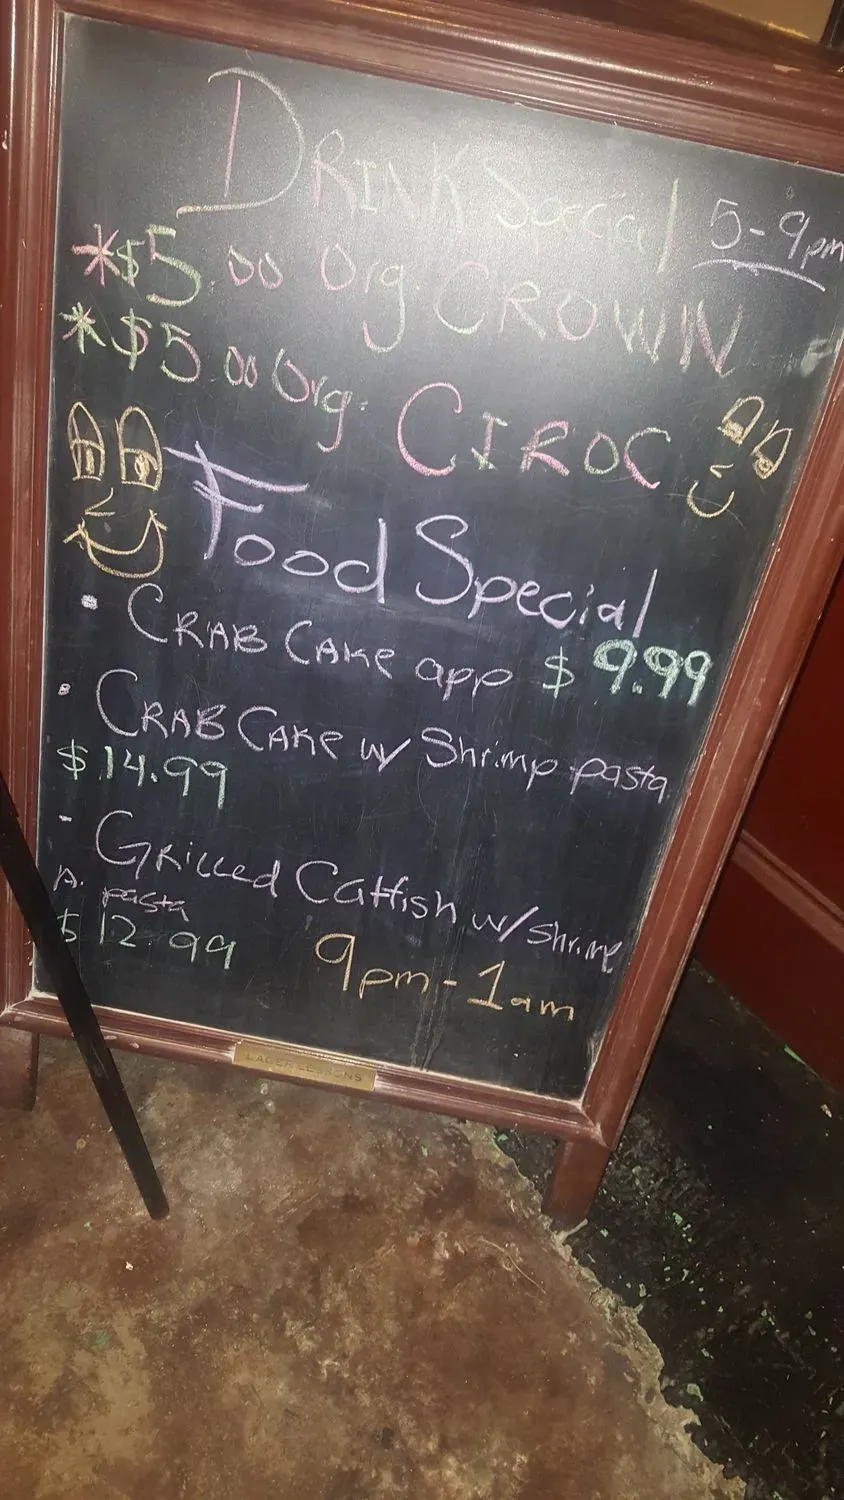 DRINK Special 5-9pm
*$5.00 Org. CROWN
*$5.00 Org. CIROC
Food Special
· CRAB CAKE app $9.99
· CRAB CAKE w/ Shrimp pasta
$14.99
- GRILLED Catfish w/ shrimp
A. pasta
$12.99 9pm-1am
LAGER LESSONS